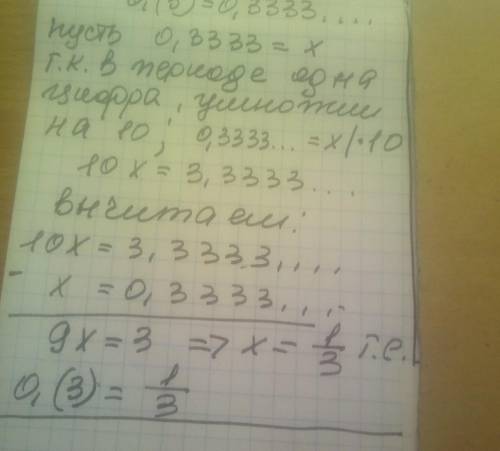 0,(3)=0,3333....
пусть 0,3333=x
т.к. в периоде одна
цифра, умножим
на 10; 0,3333...=x/·10
10x=3,3333...
вычитаем:
10x=3,3333,...
- x =0,3333,...
9x=3 => x=1/3 т.е.
0,(3)=1/3